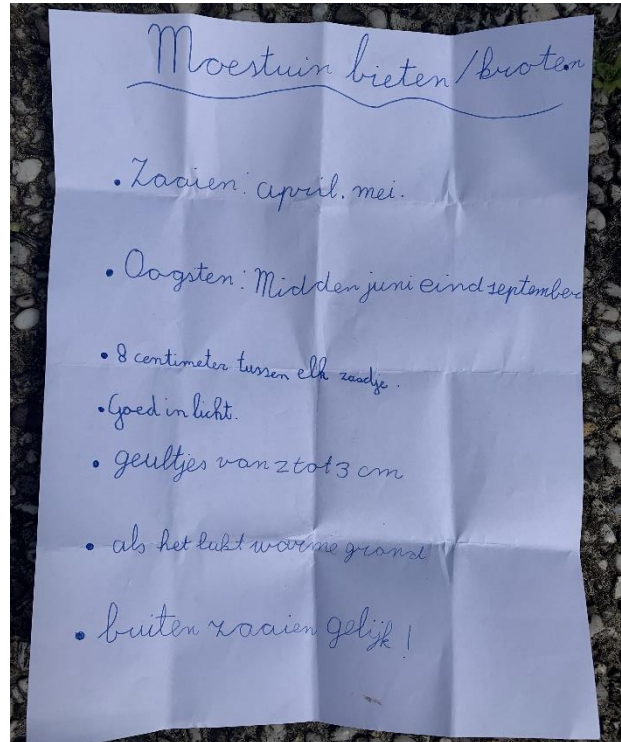 Moestuin bieten/kroten
• Zaaien: april. mei.
• Oogsten: Midden juni eind september
• 8 centimeter tussen elk zaadje.
• Goed in licht.
• geultjes van 2 tot 3 cm
• als het lukt warme grond
• buiten zaaien gelijk!